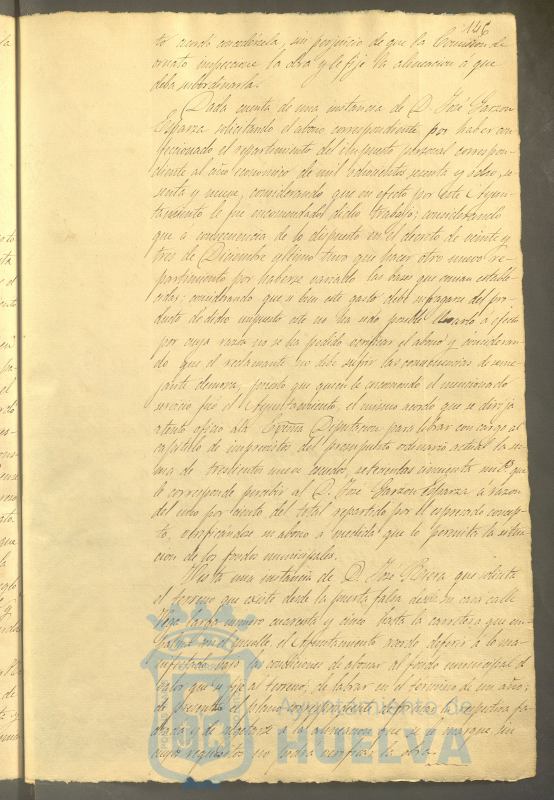 146
to acordó concedérsela, sin perjuicio de que la Comision de
ornato inspeccione la obra y le fije la alineacion a que
deba subordinarla.
Dada cuenta de una instancia de D. José Garzon
Esparza solicitando el abono correspondiente por haber con
feccionado el repartimiento del impuesto personal correspon
diente al año economico de mil ochocientos sesenta y ocho, se
senta y nueve, considerando que en efecto por este Ayun
tamiento le fue encomendado dicho trabajo; considerando
que a consecuencia de lo dispuesto en el decreto de veinte y
tres de Diciembre ultimo tuvo que hacer otro nuevo re
partimiento por haberse variado las bases que venian estable
cidas; considerando que si bien este gasto debe sufragarse del pro
ducto de dicho impuesto este no ha sido posible llevarlo a efecto
por cuya razon no se ha podido verificar el abono y consideran
do que el reclamante no debe sufrir las consecuencias de seme
jante demora, puesto que quien le encomendó el mencionado
servicio fué el Ayuntamiento, el mismo acordó que se dirija
atento oficio a la Excma Diputacion para librar con cargo al
capitulo de imprevistos del presupuesto ordinario actual la su
ma de trescientos nueve escudos, setecientas cincuenta mil.s que
le corresponde percibir al D. José Garzon Esparza a razon
del ocho por ciento del total repartido por el espresado concep
to, verificandose su abono a medida que lo permita la situa
cion de los fondos municipales.
Vista una instancia de D. José que solicita
el terreno que existe desde la puerta falsa de su casa calle
numero cuarenta y cinco hasta la carretera que con
duce al muelle, el Ayuntamiento acordó deferir a lo ma
nifestado bajo las condiciones de abonar al fondo municipal el
valor que se fije al terreno; de labrar en el termino de un año;
de presentar el plano correspondiente de la respectiva fa
chada y de sujetarse a la alineacion que se le marque sin
cuyo requisito no podrá verificar la obra.
Ayuntamiento de
HUELVA